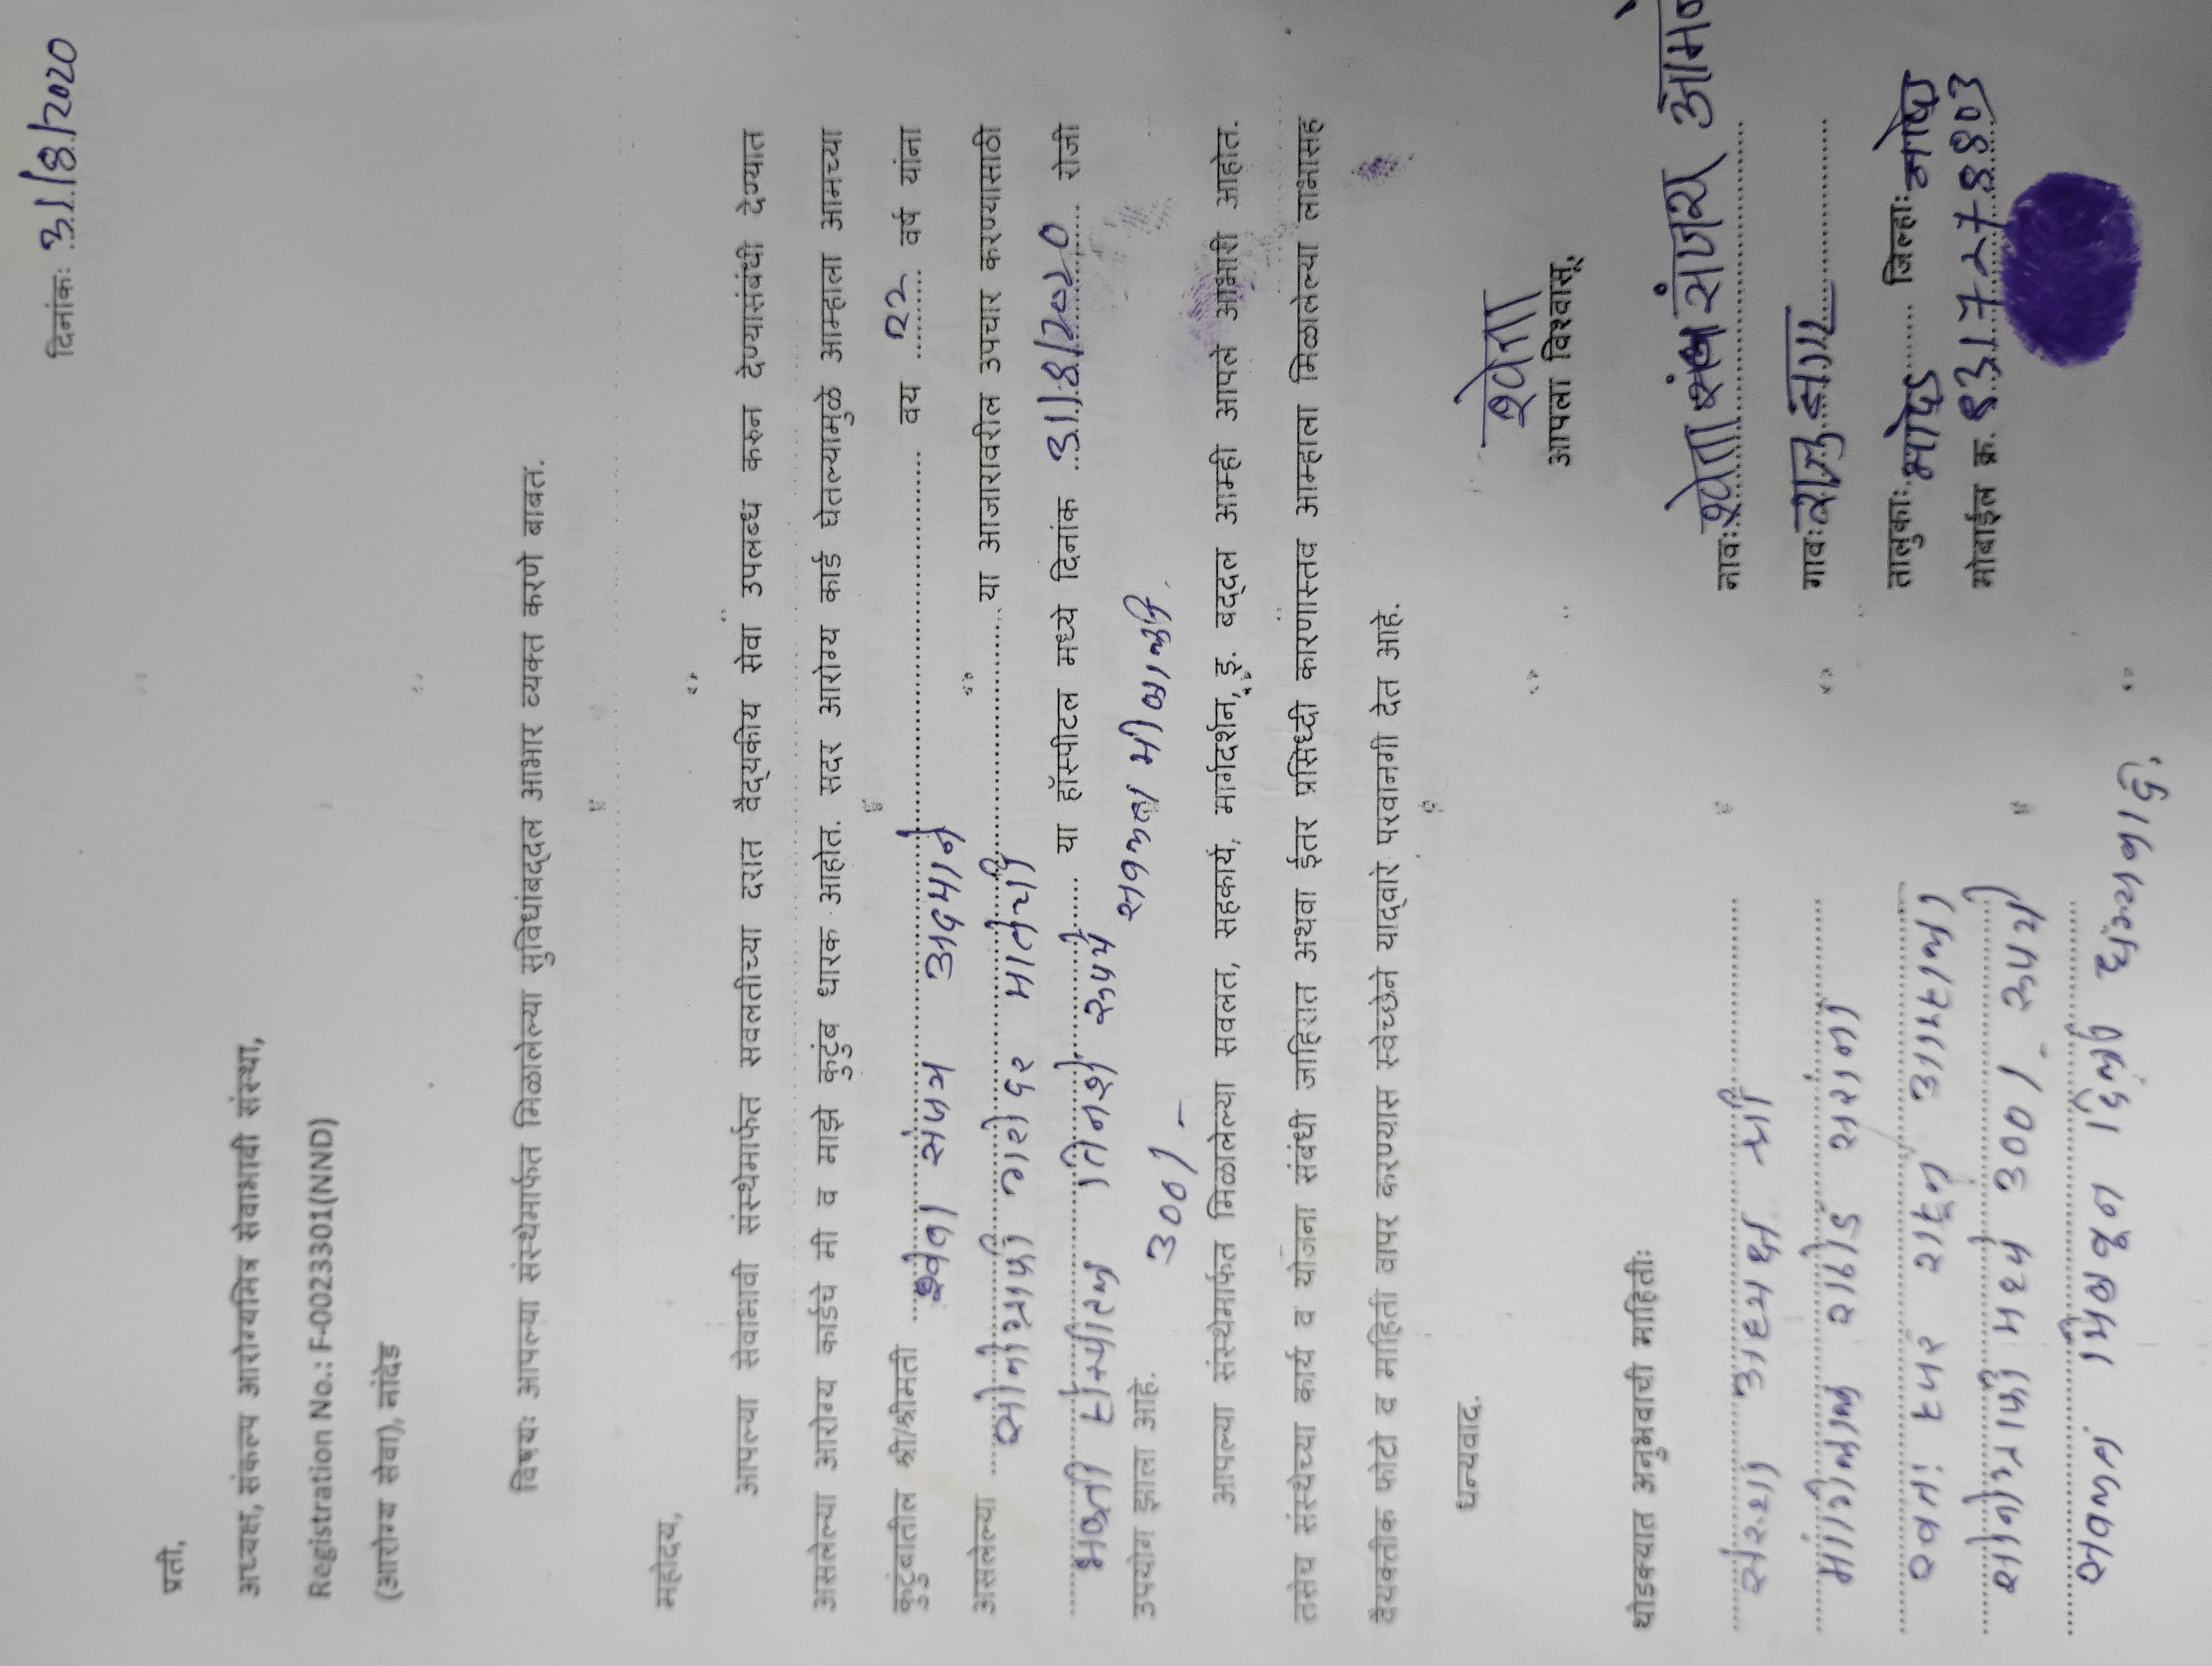 दिनांकः 31/8/2020
प्रती,
अध्यक्ष, संकल्प आरोग्यमित्र सेवाभावी संस्था,
Registration No.: F-0023301(NND)
(आरोग्य सेवा), नांदेड
विषयः आपल्या संस्थेमार्फत मिळालेल्या सुविधांबद्दल आभार व्यक्त करणे बाबत.
महोदय,
आपल्या सेवाभावी संस्थेमार्फत सवलतीच्या दरात वैद्यकीय सेवा उपलब्ध करुन देण्यासंबंधी देण्यात
असलेल्या आरोग्य कार्डचे मी व माझे कुटुंब धारक आहोत. सदर आरोग्य कार्ड घेतल्यामुळे आम्हाला आमच्या
कुटुंबातील श्री/श्रीमती श्वेता संजय वय 22 वर्ष यांना
असलेल्या सोनोग्राफी गरोदर मातेची या आजारावरील उपचार करण्यासाठी
भक्ती हॉस्पीटल तिनशे रुपये या हॉस्पीटल मध्ये दिनांक 31/8/2020 रोजी
उपयोग झाला आहे. 300/- सवलत मीळाली.
आपल्या संस्थेमार्फत मिळालेल्या सवलत, सहकार्य, मार्गदर्शन, इ. बद्दल आम्ही आपले आभारी आहोत.
तसेच संस्थेच्या कार्य व योजना संबंधी जाहिरात अथवा ईतर प्रसिध्दी कारणास्तव आम्हाला मिळालेल्या लाभासह
वैयक्तीक फोटो व माहिती वापर करण्यास स्वेच्छेने याद्वारे परवानगी देत आहे.
धन्यवाद.
श्वेता
आपला विश्वासू,
थोडक्यात अनुभवाची माहितीः
संस्था अध्यक्ष श्री
राठोड सरांनी
स्वतः हजर राहून आम्हाला
सोनोग्राफी मध्ये 300/- रुपये
सवलत मिळवून दिली धन्यवाद.
नावः श्वेता संजय
गावः
तालुकाः जिल्हाः
मोबाईल क्र. 8317278803